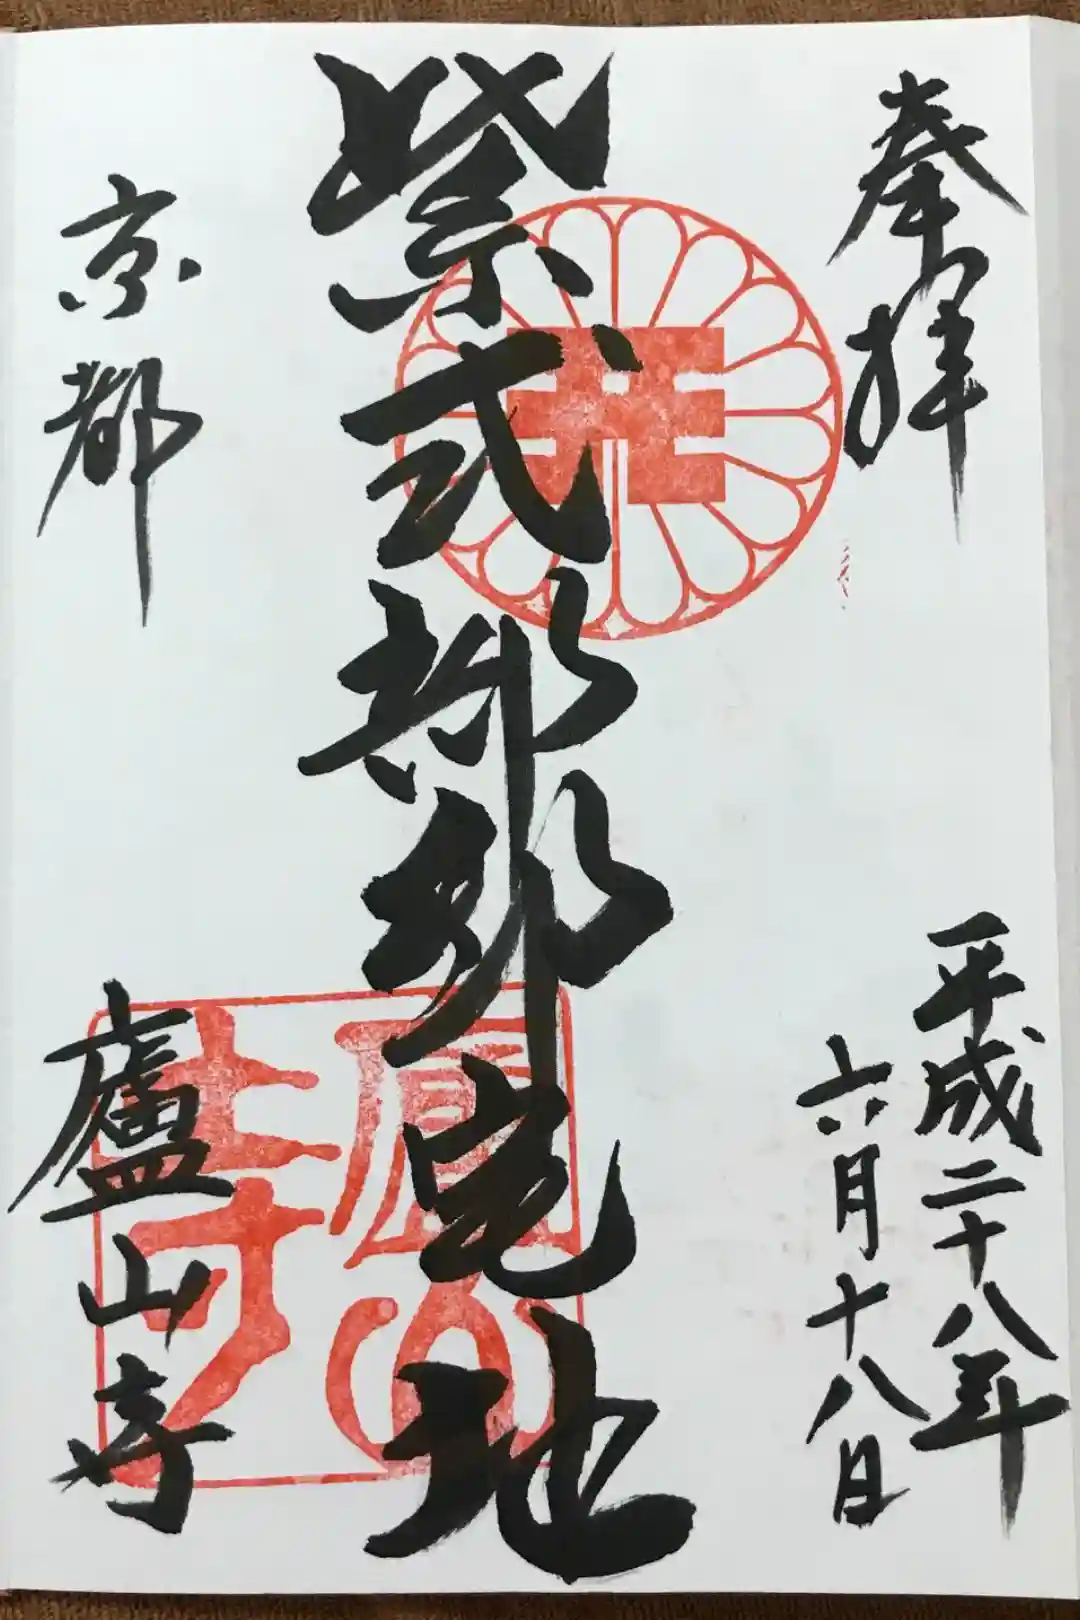 奉拝
平成二十八年
六月十八日
紫式部邸宅址
京都
廬山寺
廬山寺